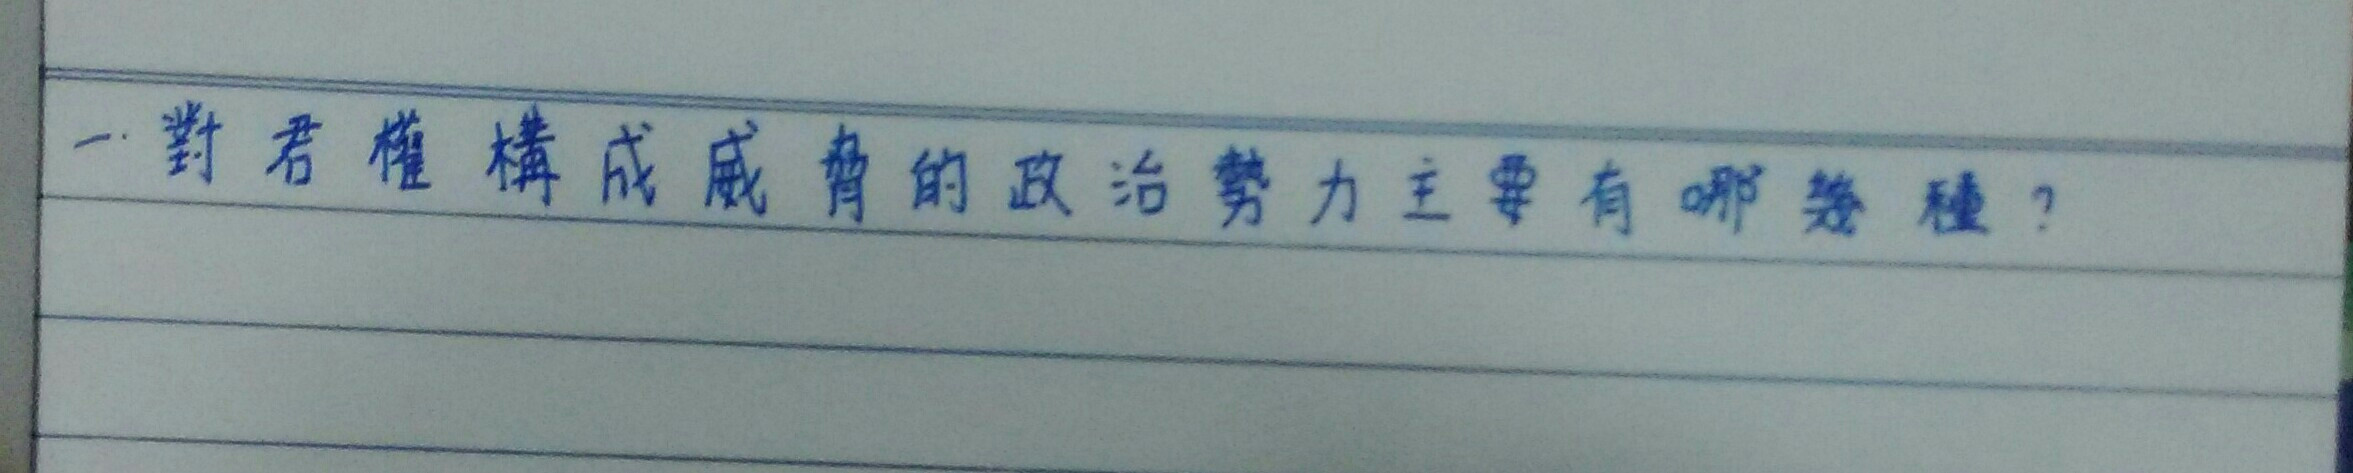 一.對君權構成威脅的政治勢力主要有哪幾種?